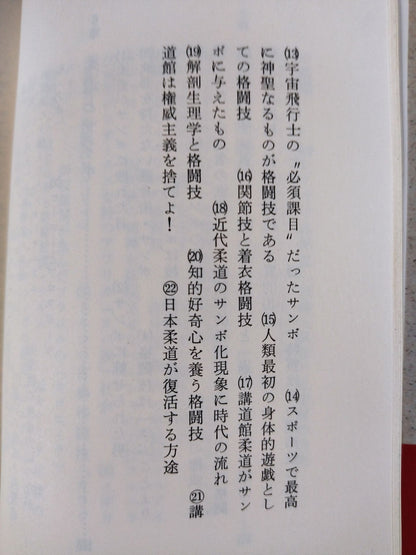 ⒀宇宙飛行士の〝必須課目〟だったサンボ　⒁スポーツで最高
に神聖なるものが格闘技である　⒂人類最初の身体的遊戯とし
ての格闘技　⒃関節技と着衣格闘技　⒄講道館柔道がサン
ボに与えたもの　⒅近代柔道のサンボ化現象に時代の流れ
⒆解剖生理学と格闘技　⒇知的好奇心を養う格闘技　㉑講
道館は権威主義を捨てよ！　㉒日本柔道が復活する方途